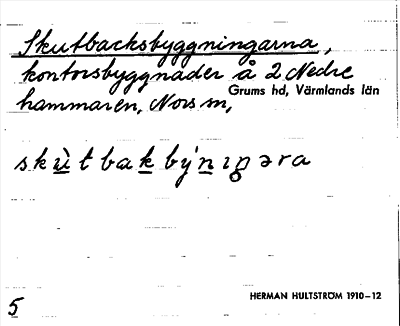 Skutbacksbyggningarna,
kontorsbyggnader å 2 Nedre
Grums hd, Värmlands län
hammaren, Nors sn,
skùtbakbýnıŋəra
5
HERMAN HULTSTRÖM 1910–12